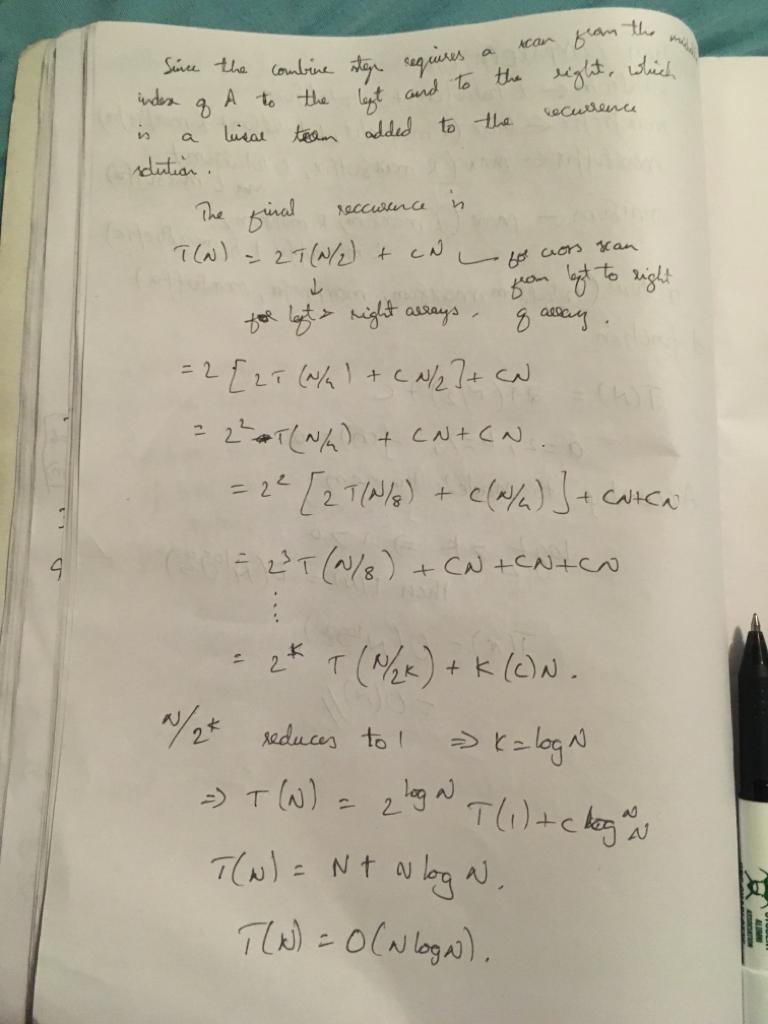 Since the combine step requires a scan from the
index of A to the left and to the right, which
is a linear term added to the recurrence
solution.
The final reccurence is
T(N) = 2T(N/2) + CN for cross scan
from left to right
of array.
↓
for left > right arrays.
= 2 [2T(N/4) + CN/2] + CN
= 2² T(N/4) + CN + CN.
= 2² [2T(N/8) + C(N/4)] + CN+CN
= 2³ T(N/8) + CN + CN + CN
⋮
= 2^K T(N/2K) + K(C)N.
N/2^K reduces to 1 ⇒ K = log N
⇒ T(N) = 2^log N T(1) + C log N N
T(N) = N + N log N.
T(N) = O(N log N).
ALUMNI
ASSOCIATION